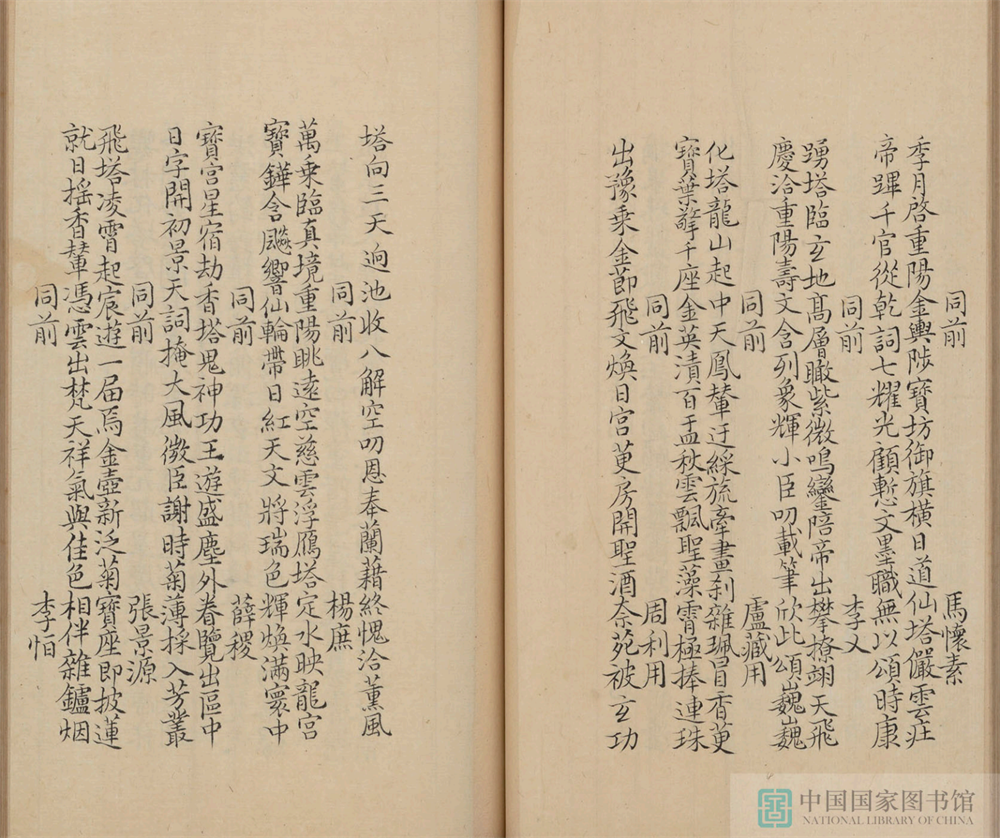 同前　馬懷素
季月啓重陽金輿陟寶坊御旗橫日道仙塔儼雲莊
帝蹕千官從乾詞七耀光顧慙文墨職無以頌時康
同前　李乂
踴塔臨玄地髙層瞰紫微鳴鑾陪帝出攀橑翊天飛
慶洽重陽壽文含列象輝小臣叨載筆欣此頌巍巍
同前　盧藏用
化塔龍山起中天鳳輦迂綵旒牽畫刹雜珮冒香萸
寶葉擎千座金英漬百盂秋雲飄聖藻霄極捧連珠
同前　周利用
出豫乘金莭飛文煥日宫萸房開聖酒柰苑被玄功
塔向三天逈池收八解空叨恩奉蘭藉終愧洽薰風
同前　楊庶
萬乘臨真境重陽眺遠空慈雲浮鴈塔定水映龍宫
寶鐸含飈響仙輪帶日紅天文將瑞色輝煥滿寰中
同前　薛稷
寶宫星宿劫香塔鬼神功王遊盛塵外睿覽出區中
日字開初景天詞掩大風微臣謝時菊薄採入芳叢
同前　張景源
飛塔凌霄起宸遊一届焉金壺新泛菊寶座即披蓮
就日揺香輦憑雲出梵天祥氣與佳色相伴雜鑪烟
同前　李恒
中国国家图书馆
NATIONAL LIBRARY OF CHINA